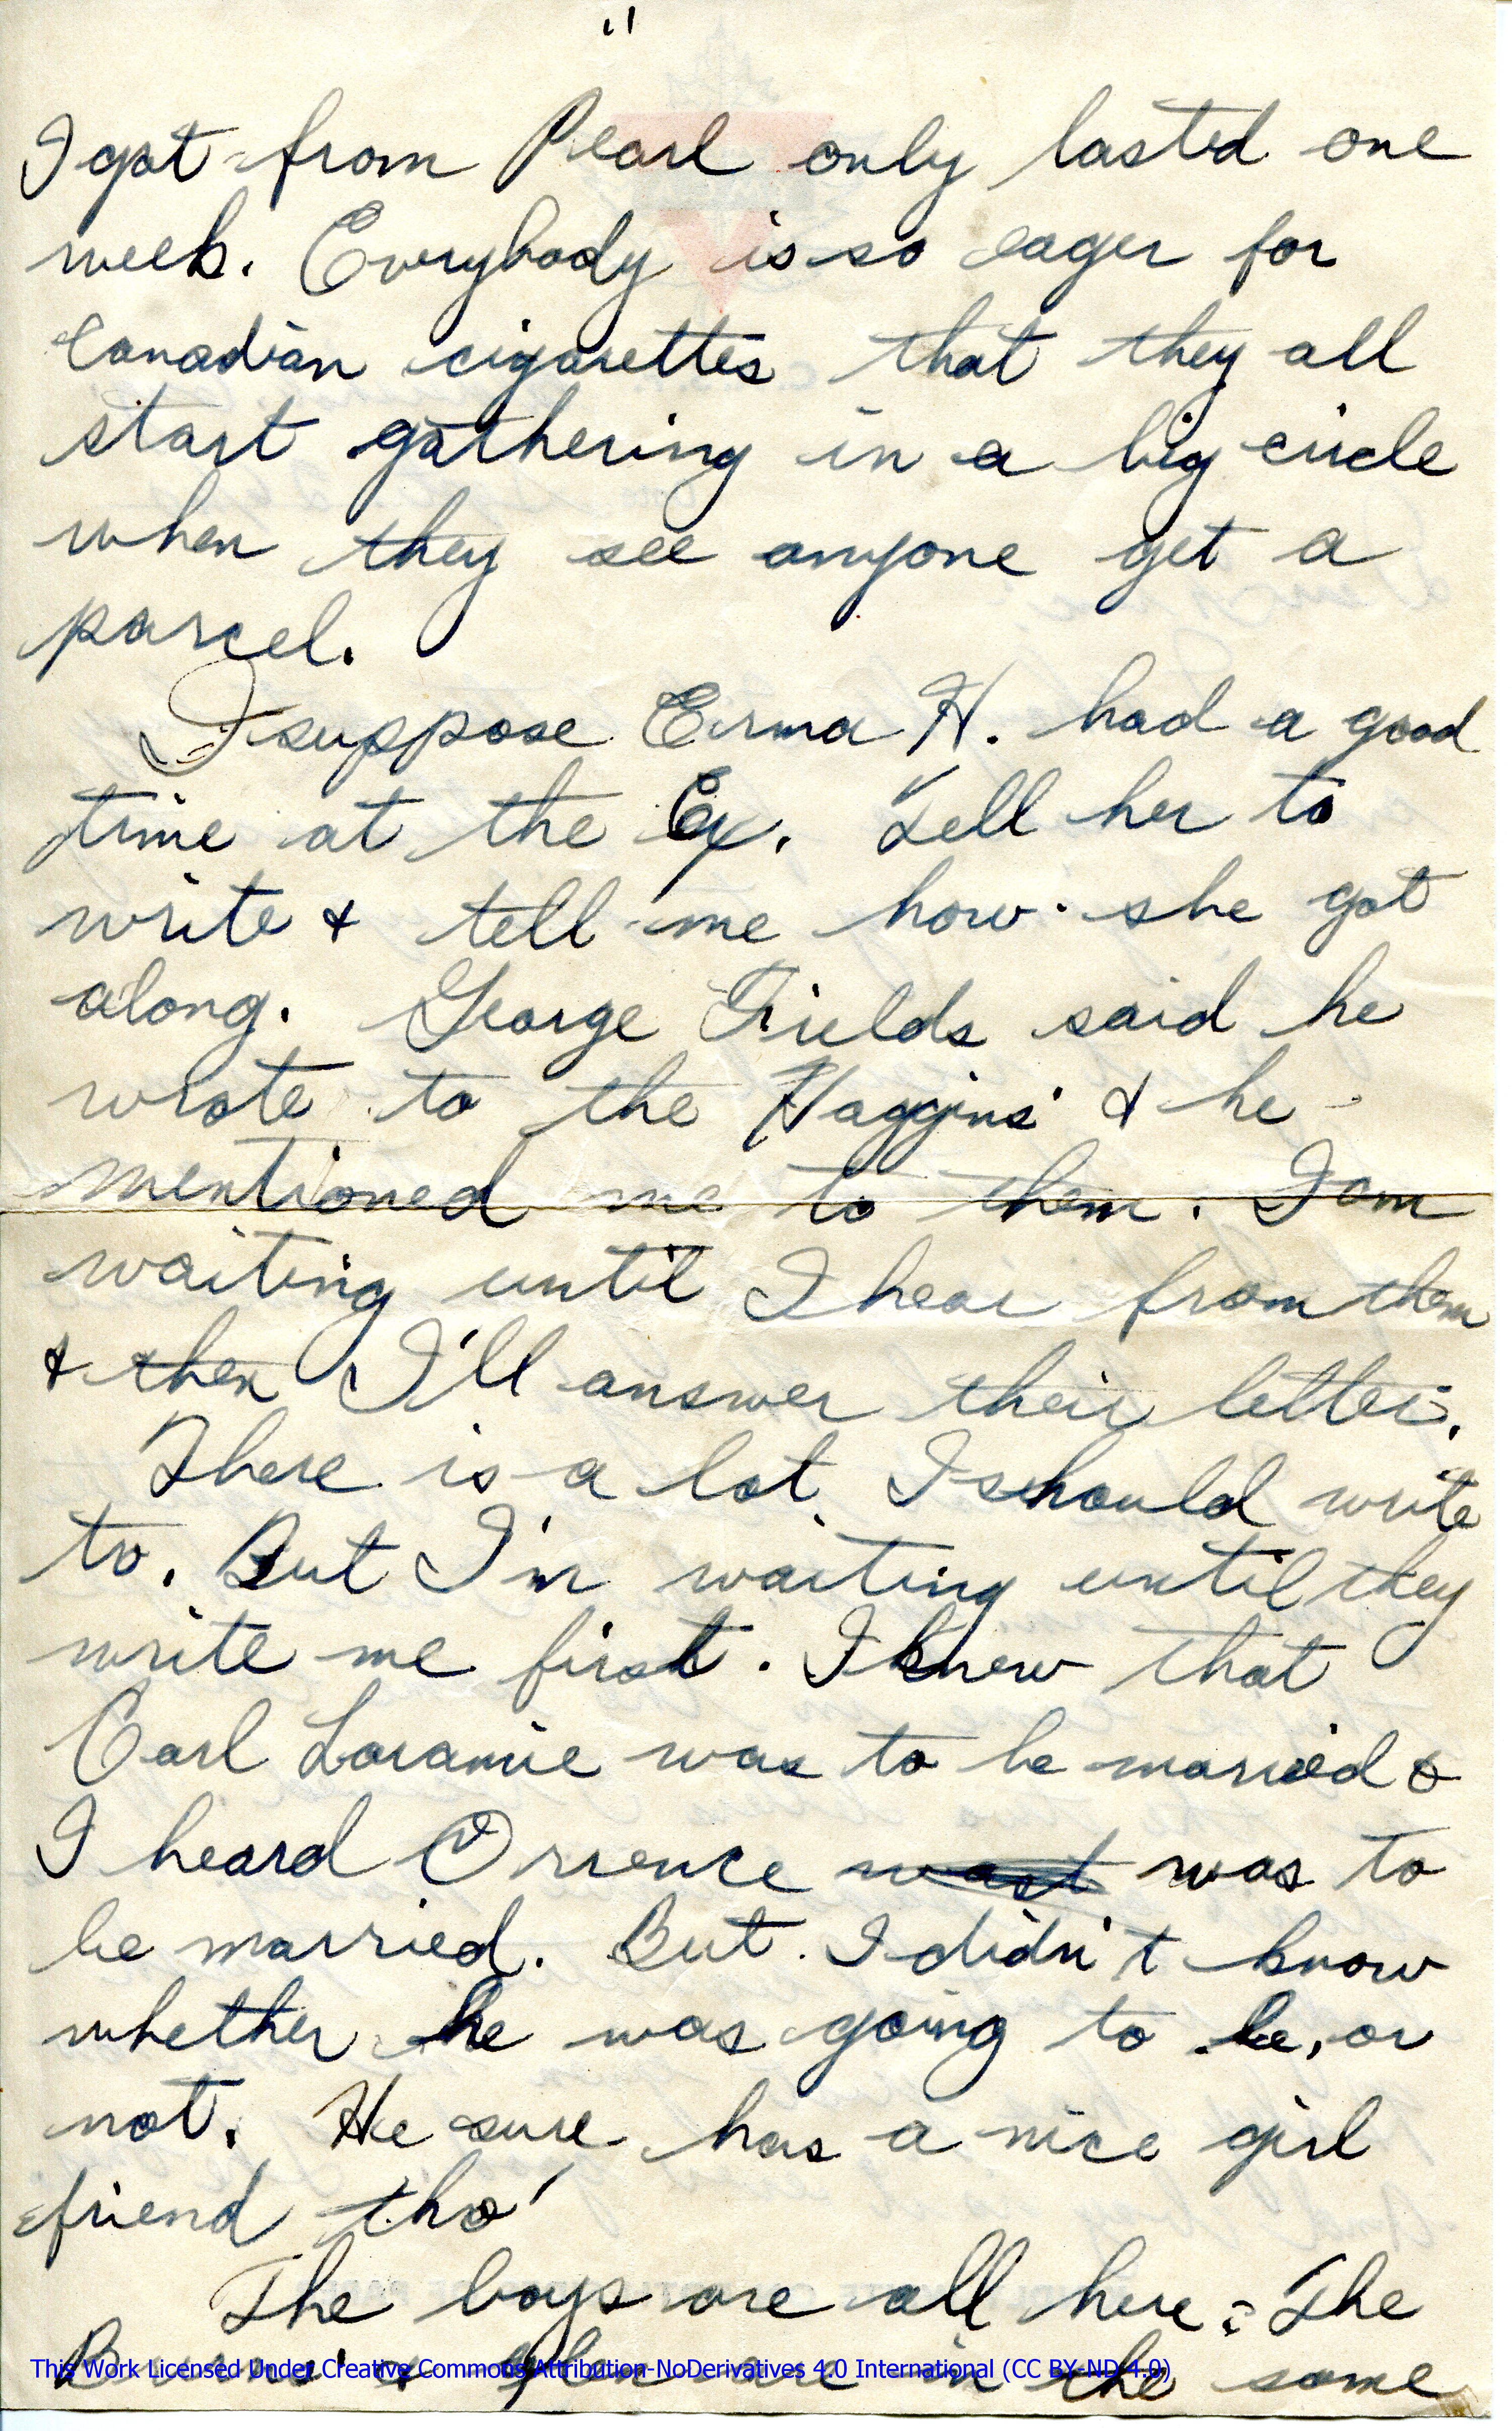 "
I got from Pearl only lasted one
week. Everybody is so eager for
Canadian cigarettes that they all
start gathering in a big circle
when they see anyone get a
parcel.
I suppose Erma H. had a good
time at the Ex. Tell her to
write & tell me how she got
along. George Fields said he
wrote to the Haggins' & he
mentioned me to them. I am
waiting until I hear from them
& then I'll answer their letter.
There is a lot I should write
to. But I'm waiting until they
write me first. I knew that
Carl Loramie was to be married &
I heard Orrence was to
be married. But I didn't know
whether he was going to be, or
not. He sure has a nice girl
friend tho'
The boys are all here. The
Burns' & Glen are in the same
This Work Licensed Under Creative Commons Attribution-NoDerivatives 4.0 International (CC BY-ND 4.0)